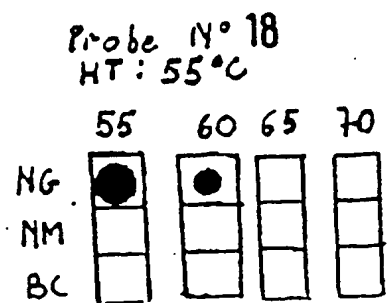 Probe N° 18
HT: 55°C
55 60 65 70
NG
NM
BC